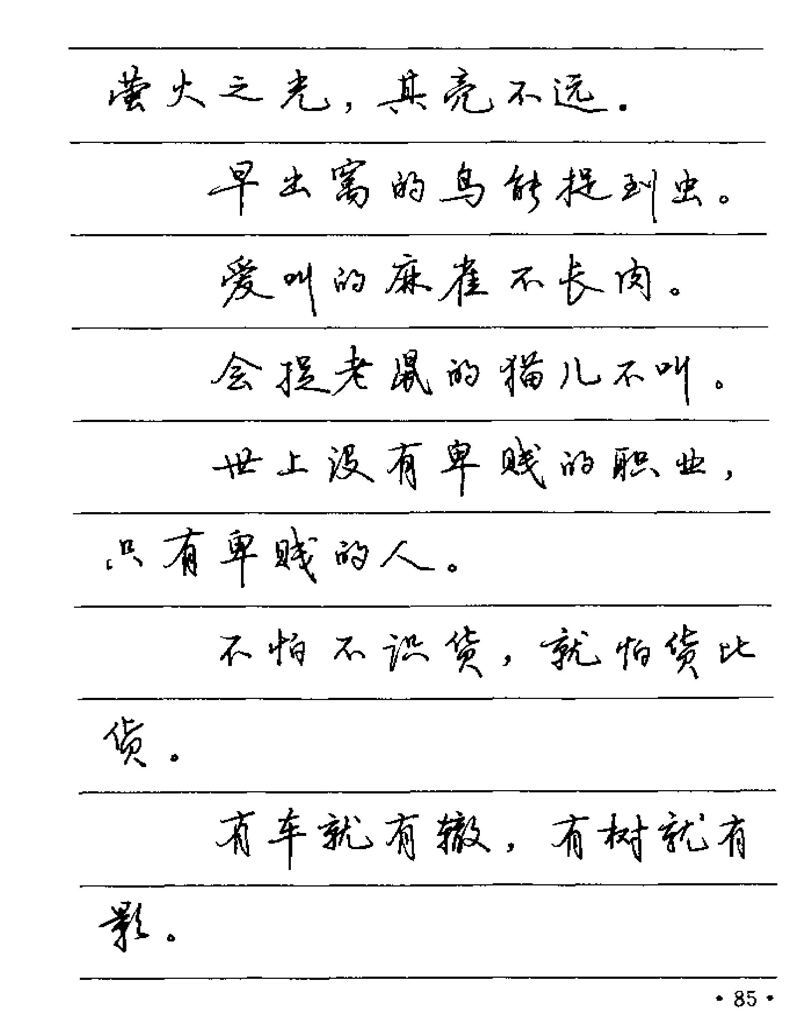 萤火之光，其亮不远.
早出窝的鸟能捉到虫。
爱叫的麻雀不长肉。
会捉老鼠的猫儿不叫。
世上没有卑贱的职业，
只有卑贱的人。
不怕不识货，就怕货比
货。
有车就有辙，有树就有
影。
·85·